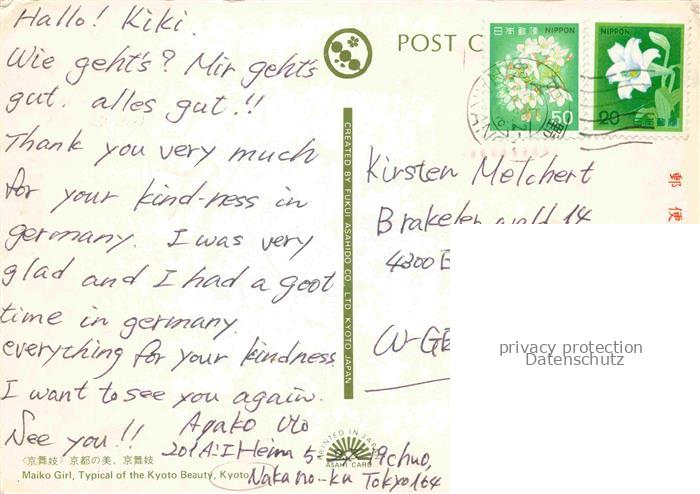 Hallo! Kiki.
Wie geht's? Mir geht's
gut. alles gut.!!
Thank you very much
for your kind-ness in
germany. I was very
glad and I had a goot
time in germany.
everything for your kindness
I want to see you again.
See you!!
Ayako Uto
5-
9 chuo,
Nakano-ku Tokyo 164
〈京舞妓〉京都の美、京舞妓
Maiko Girl, Typical of the Kyoto Beauty, Kyoto
CREATED BY FUKUI ASAHIDO CO., LTD KYOTO JAPAN
PRINTED IN JAPAN
ASAHI CARD
POST C
日本郵便 NIPPON
50
NIPPON
20 日本郵便
郵便
Kirsten Melchert
Brakeler wald 14
4300 E
W-GE
privacy protection
Datenschutz